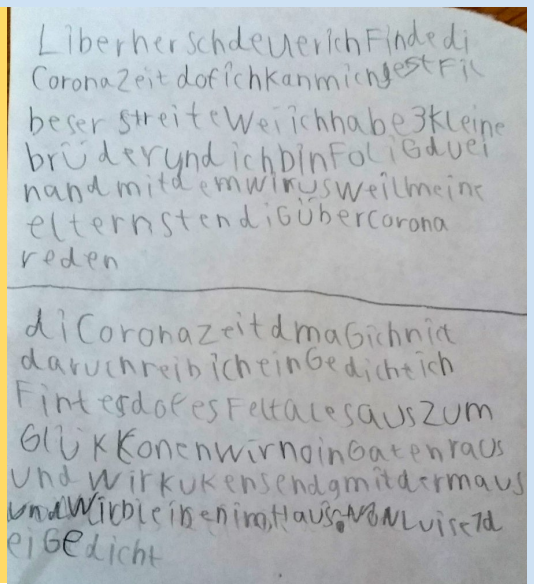 LiberherschdeuerichFindedi
CoronaZeitdofichkanmichjestFil
beserstreiteWeilichhabe3Kleine
brüderyndichbinFoliGduei
nandmitdemwirusweilmeine
elternstendiGüberCorona
reden
diCoronazeitdmaGichnict
daruchreibicheinGedichtich
FintesdofesFeltalesausZum
GlükKonenwirnoinGatenraus
undWirkukensendgmitdermaus
undWirbleibenimHaus.VONLuise7d
eiGedicht